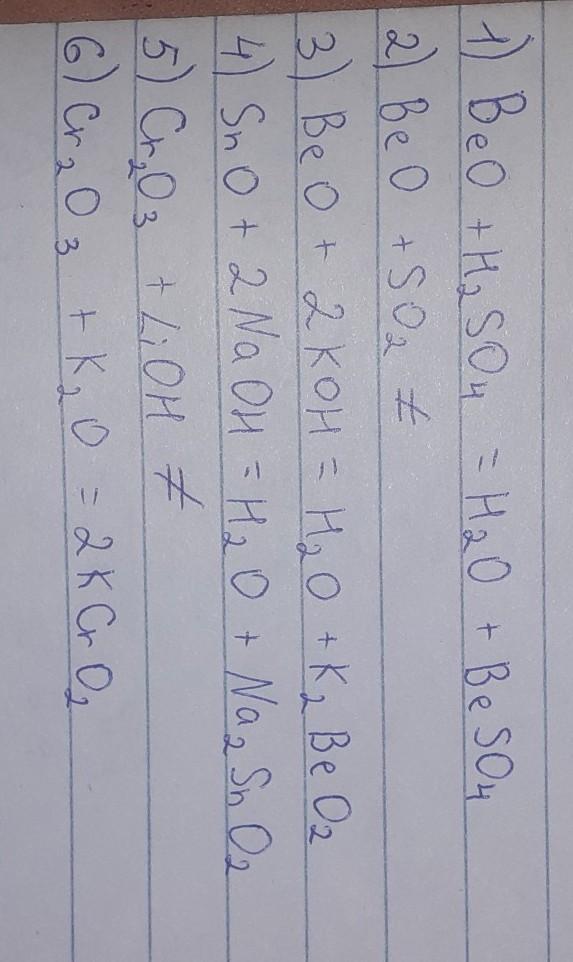 1) BeO + H₂SO₄ = H₂O + BeSO₄
2) BeO + SO₂ ≠
3) BeO + 2KOH = H₂O + K₂BeO₂
4) SnO + 2NaOH = H₂O + Na₂SnO₂
5) Cr₂O₃ + LiOH ≠
6) Cr₂O₃ + K₂O = 2KCrO₂